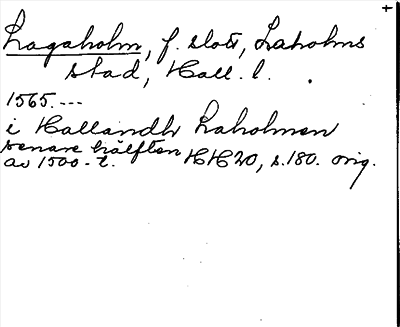 Lagaholm, f. slott, Laholms
stad, Hall. l.
1565.---
i Hallandh Laholmen
senare hälften
av 1500-t. HH20, s.180. orig.